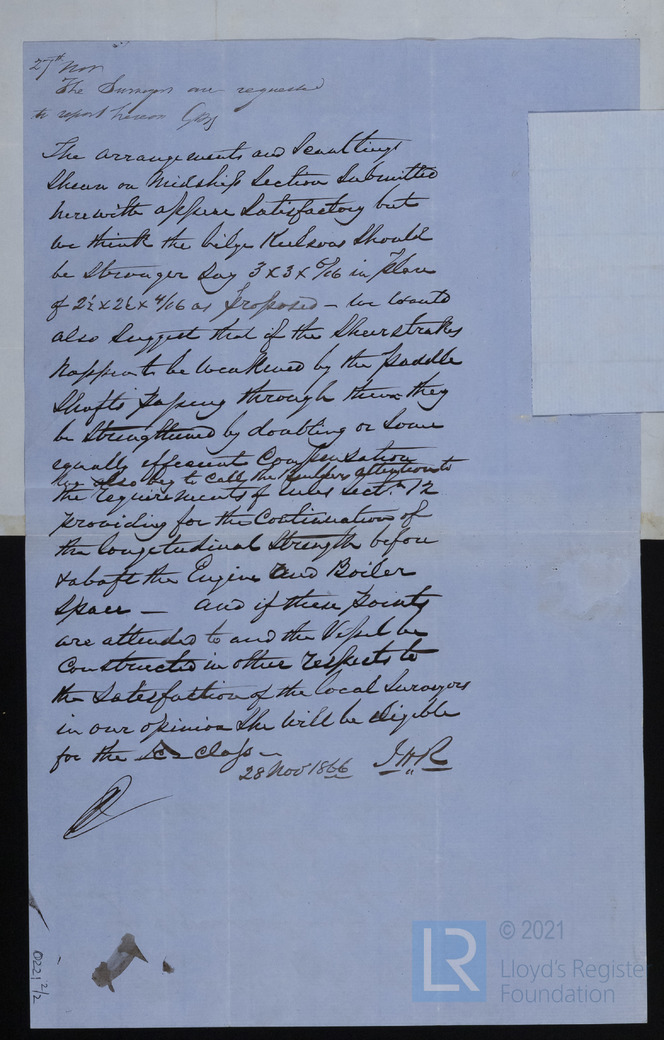 27th Nov
The Surveyors are requested
to report hereon
The arrangements and Scantlings
Shewn on Midship Section Submitted
herewith appear Satisfactory but
we think the bilge Keelsons Should
be Stronger Say 3 x 3 x 5/16 in place
of 2½ x 2½ x 4/16 as proposed - we would
also Suggest that if the Sheerstrakes
happen to be weakened by the paddle
Shafts passing through them they
be Strengthened by doubling or Some
equally efficient Compensation
We also beg to call the Builders attention to
the requirements of rules Sectn 12
providing for the Continuation of
the longitudinal Strength before
& abaft the Engine and Boiler
Space — and if these points
are attended to and the Vessel be
Constructed in other respects to
the Satisfaction of the local Surveyors
in our opinion She will be eligible
for the class -
28 Nov 1866 J.H.R
0221 2/2
LR
© 2021
Lloyd's Register
Foundation